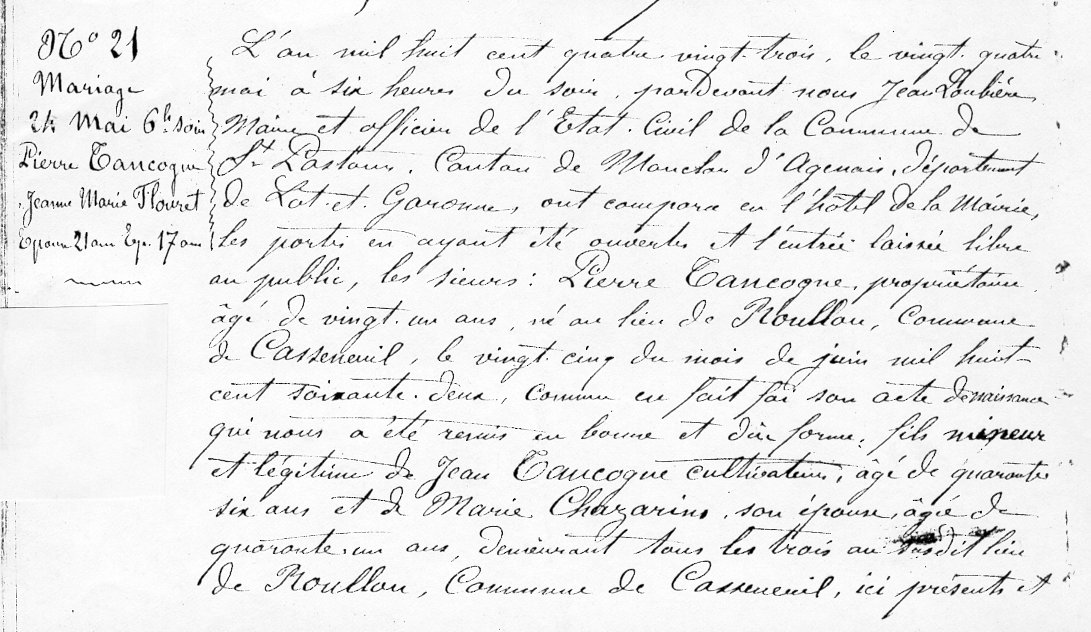 N° 21
Mariage
24 Mai 6h soir
Pierre Tancogne
Jeanne Marie Flouret
Epoux 21 ans Ep. 17 ans
L'an mil huit cent quatre vingt trois, le vingt quatre
mai à six heures du soir, pardevant nous Jean Loubière,
Maire et officier de l'Etat Civil de la Commune de
St Pastour, Canton de Monclar d'Agenais, département
de Lot-et-Garonne, ont comparu en l'hôtel de la Mairie,
les portes en ayant été ouvertes et l'entrée laissée libre
au public, les sieurs : Pierre Tancogne, propriétaire,
âgé de vingt un ans, né au lieu de Roullou, Commune
de Casseneuil, le vingt cinq du mois de juin mil huit
cent soixante-deux, comme en fait foi son acte de naissance
qui nous a été remis en bonne et due forme, fils mineur
et légitime de Jean Tancogne cultivateur, âgé de quarante
six ans et de Marie Chazarins, son épouse, âgée de
quarante-un ans, demeurant tous les trois au susdit lieu
de Roullou, Commune de Casseneuil, ici présents et